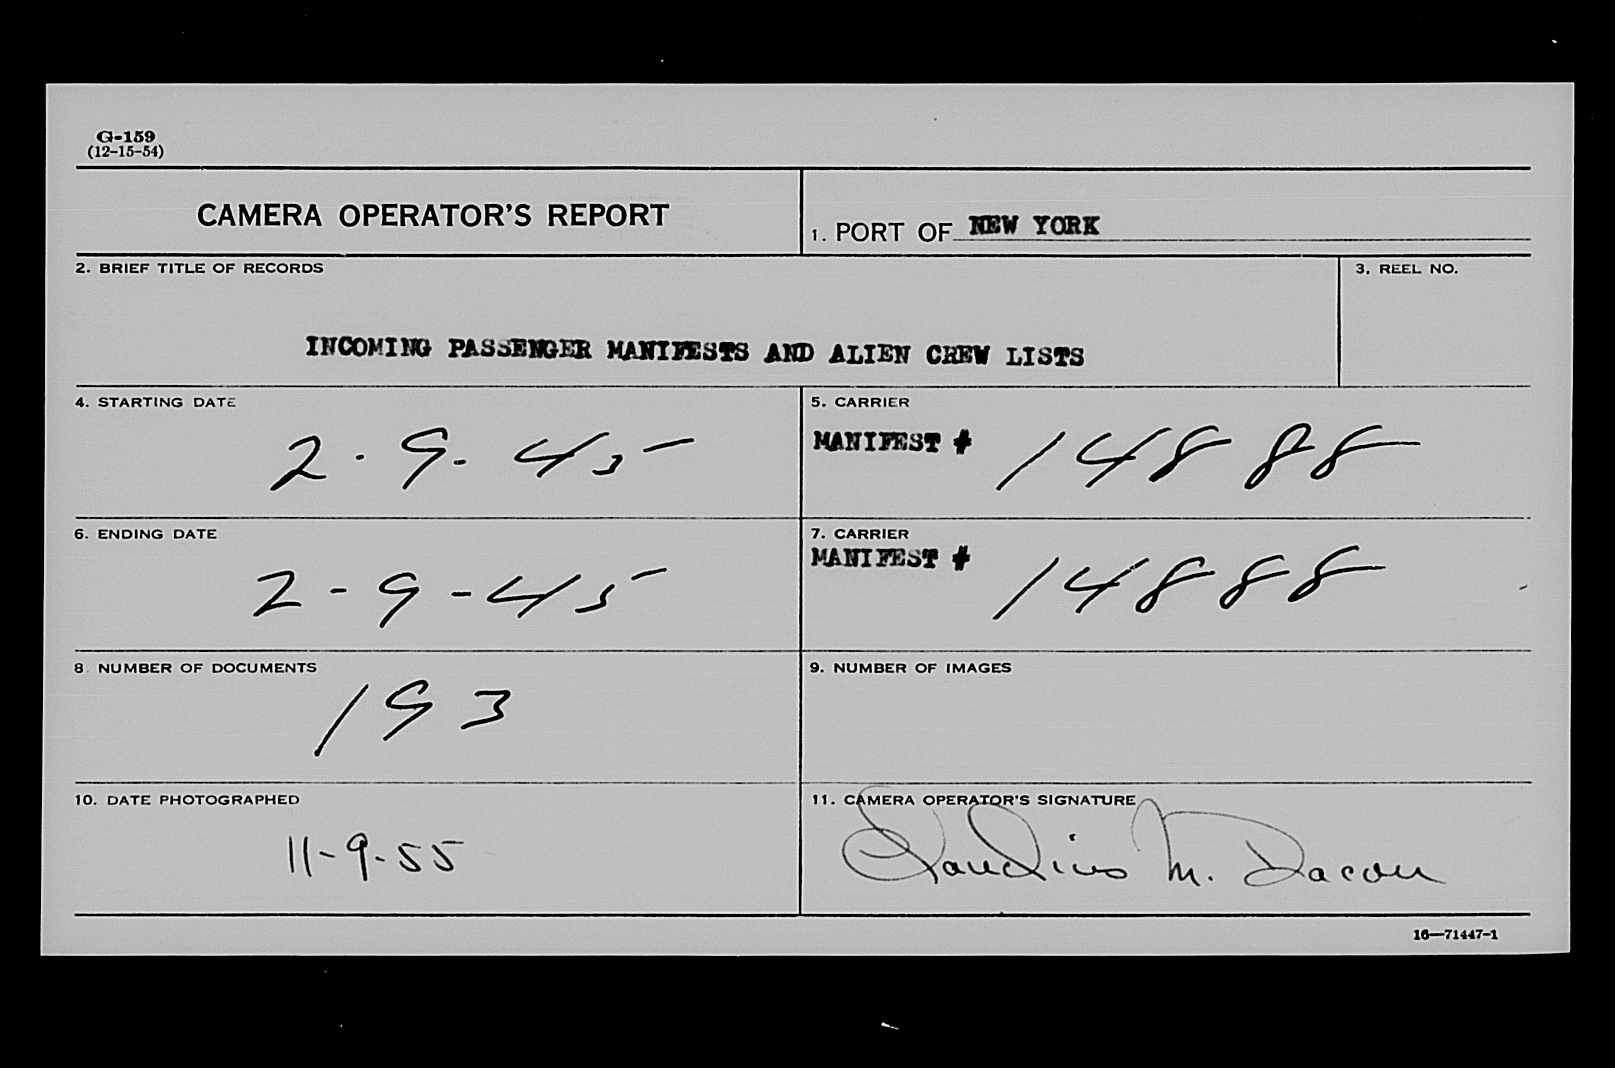 G-159
(12-15-54)
CAMERA OPERATOR'S REPORT
1. PORT OF NEW YORK
2. BRIEF TITLE OF RECORDS
3. REEL NO.
INCOMING PASSENGER MANIFESTS AND ALIEN CREW LISTS
4. STARTING DATE
2-9-45
5. CARRIER
MANIFEST # 14888
6. ENDING DATE
2-9-45
7. CARRIER
MANIFEST # 14888
8. NUMBER OF DOCUMENTS
193
9. NUMBER OF IMAGES
10. DATE PHOTOGRAPHED
11-9-55
11. CAMERA OPERATOR'S SIGNATURE
Claudius M. Dacon
16—71447-1